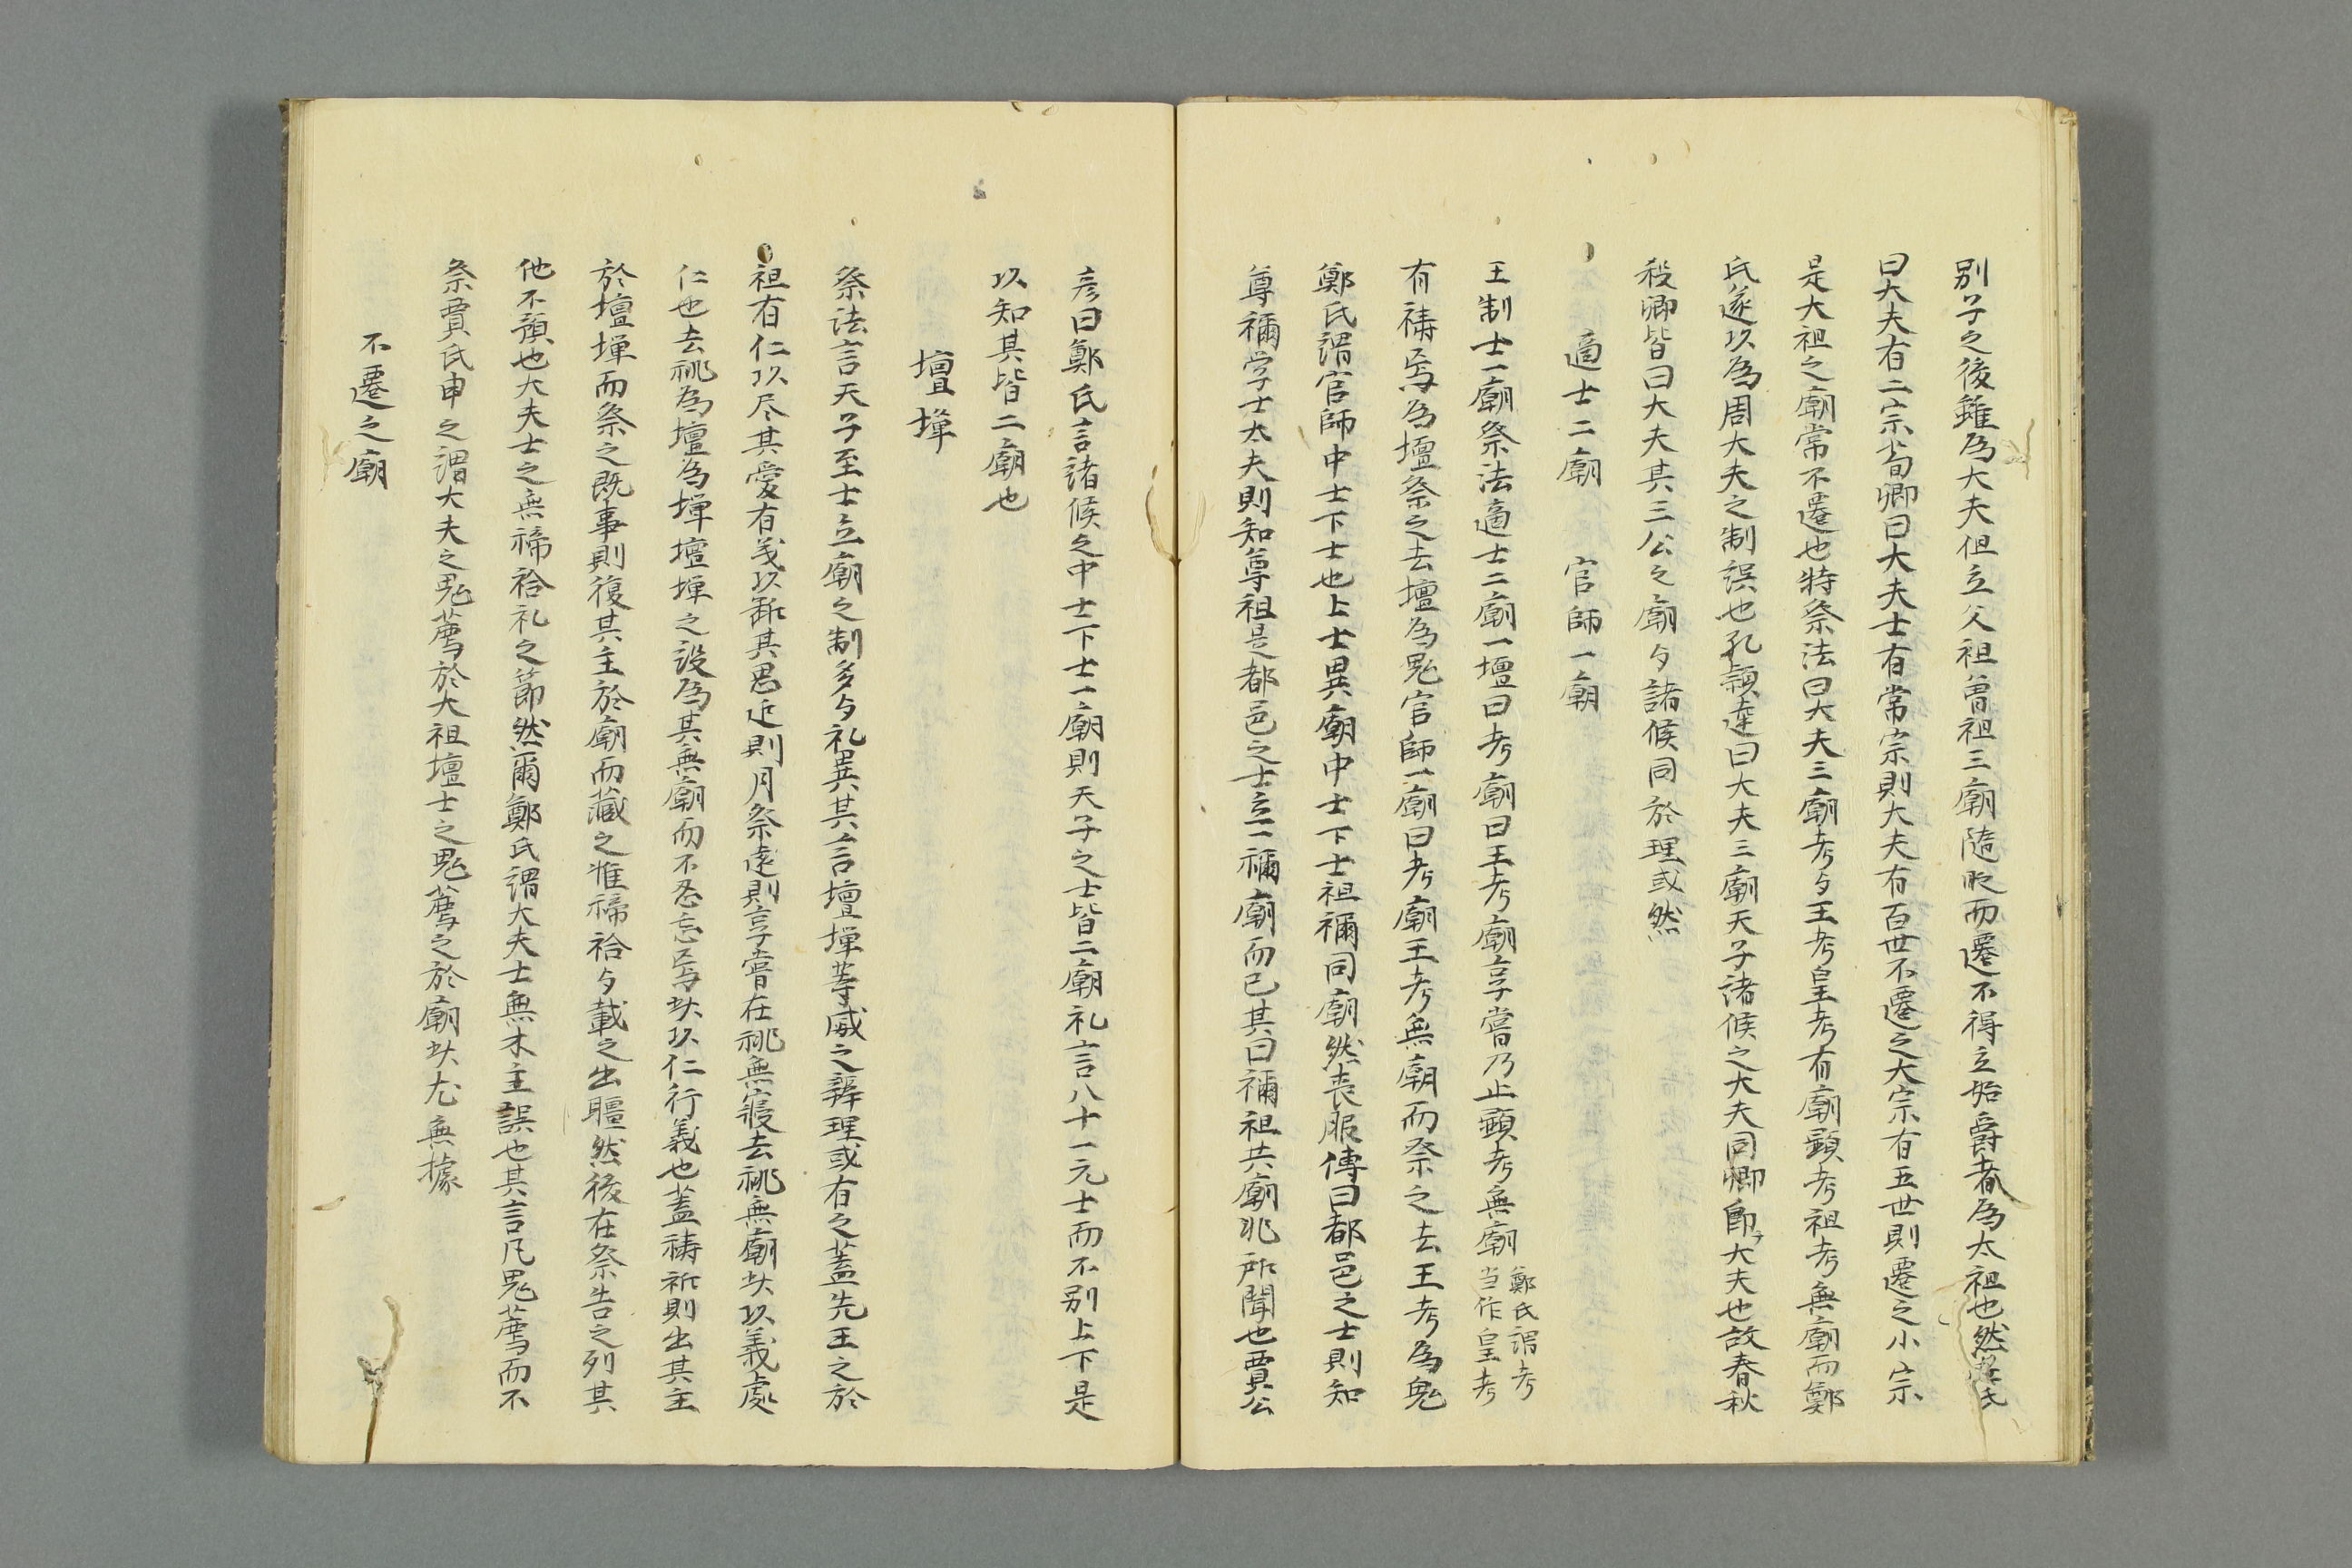 別子之後雖為大夫但立父祖曽祖三廟隨時而遷不得立始爵者為太祖也然穀梁氏
曰大夫有二宗荀卿曰大夫士有常宗則大夫有百世不遷之大宗有五世則遷之小宗
是大祖之廟常不遷也特祭法曰大夫三廟考与王考皇考有廟顕考祖考無廟而鄭
氏遂以為周大夫之制誤也孔頴達曰大夫三廟天子諸候之大夫同卿即大夫也故春秋
殺卿皆曰大夫其三公之廟与諸候同於理或然
適士二廟　官師一廟
王制士一廟祭法適士二廟一壇曰考廟曰王考廟享嘗乃止顕考無廟鄭氏謂考当作皇考
有禱焉為壇祭之去壇為鬼官師一廟曰考廟王考無廟而祭之去王考為鬼
鄭氏謂官師中士下士也上士異廟中士下士祖禰同廟然喪服傳曰都邑之士則知
尊禰学士太夫則知尊祖是都邑之士立一禰廟而已其曰禰祖共廟非所聞也賈公
彦曰鄭氏言諸候之中士下士一廟則天子之士皆二廟礼言八十一元士而不别上下是
以知其皆二廟也
壇墠
祭法言天子至士立廟之制多与礼異其言壇墠等威之辨理或有之蓋先王之於
祖有仁以尽其愛有義以断其恩近則月祭遠則享嘗在祧無寢去祧無廟此以義處
仁也去祧為壇為墠壇墠之設為其無廟而不忍忘焉此以仁行義也蓋禱祈則出其主
於壇墠而祭之既事則復其主於廟而藏之惟禘祫与載之出疆然後在祭告之列其
他不預也大夫士之無禘祫礼之節然爾鄭氏謂大夫士無木主誤也其言凡鬼薦而不
祭賈氏申之謂大夫之鬼薦於大祖壇士之鬼薦之於廟此尤無據
不遷之廟